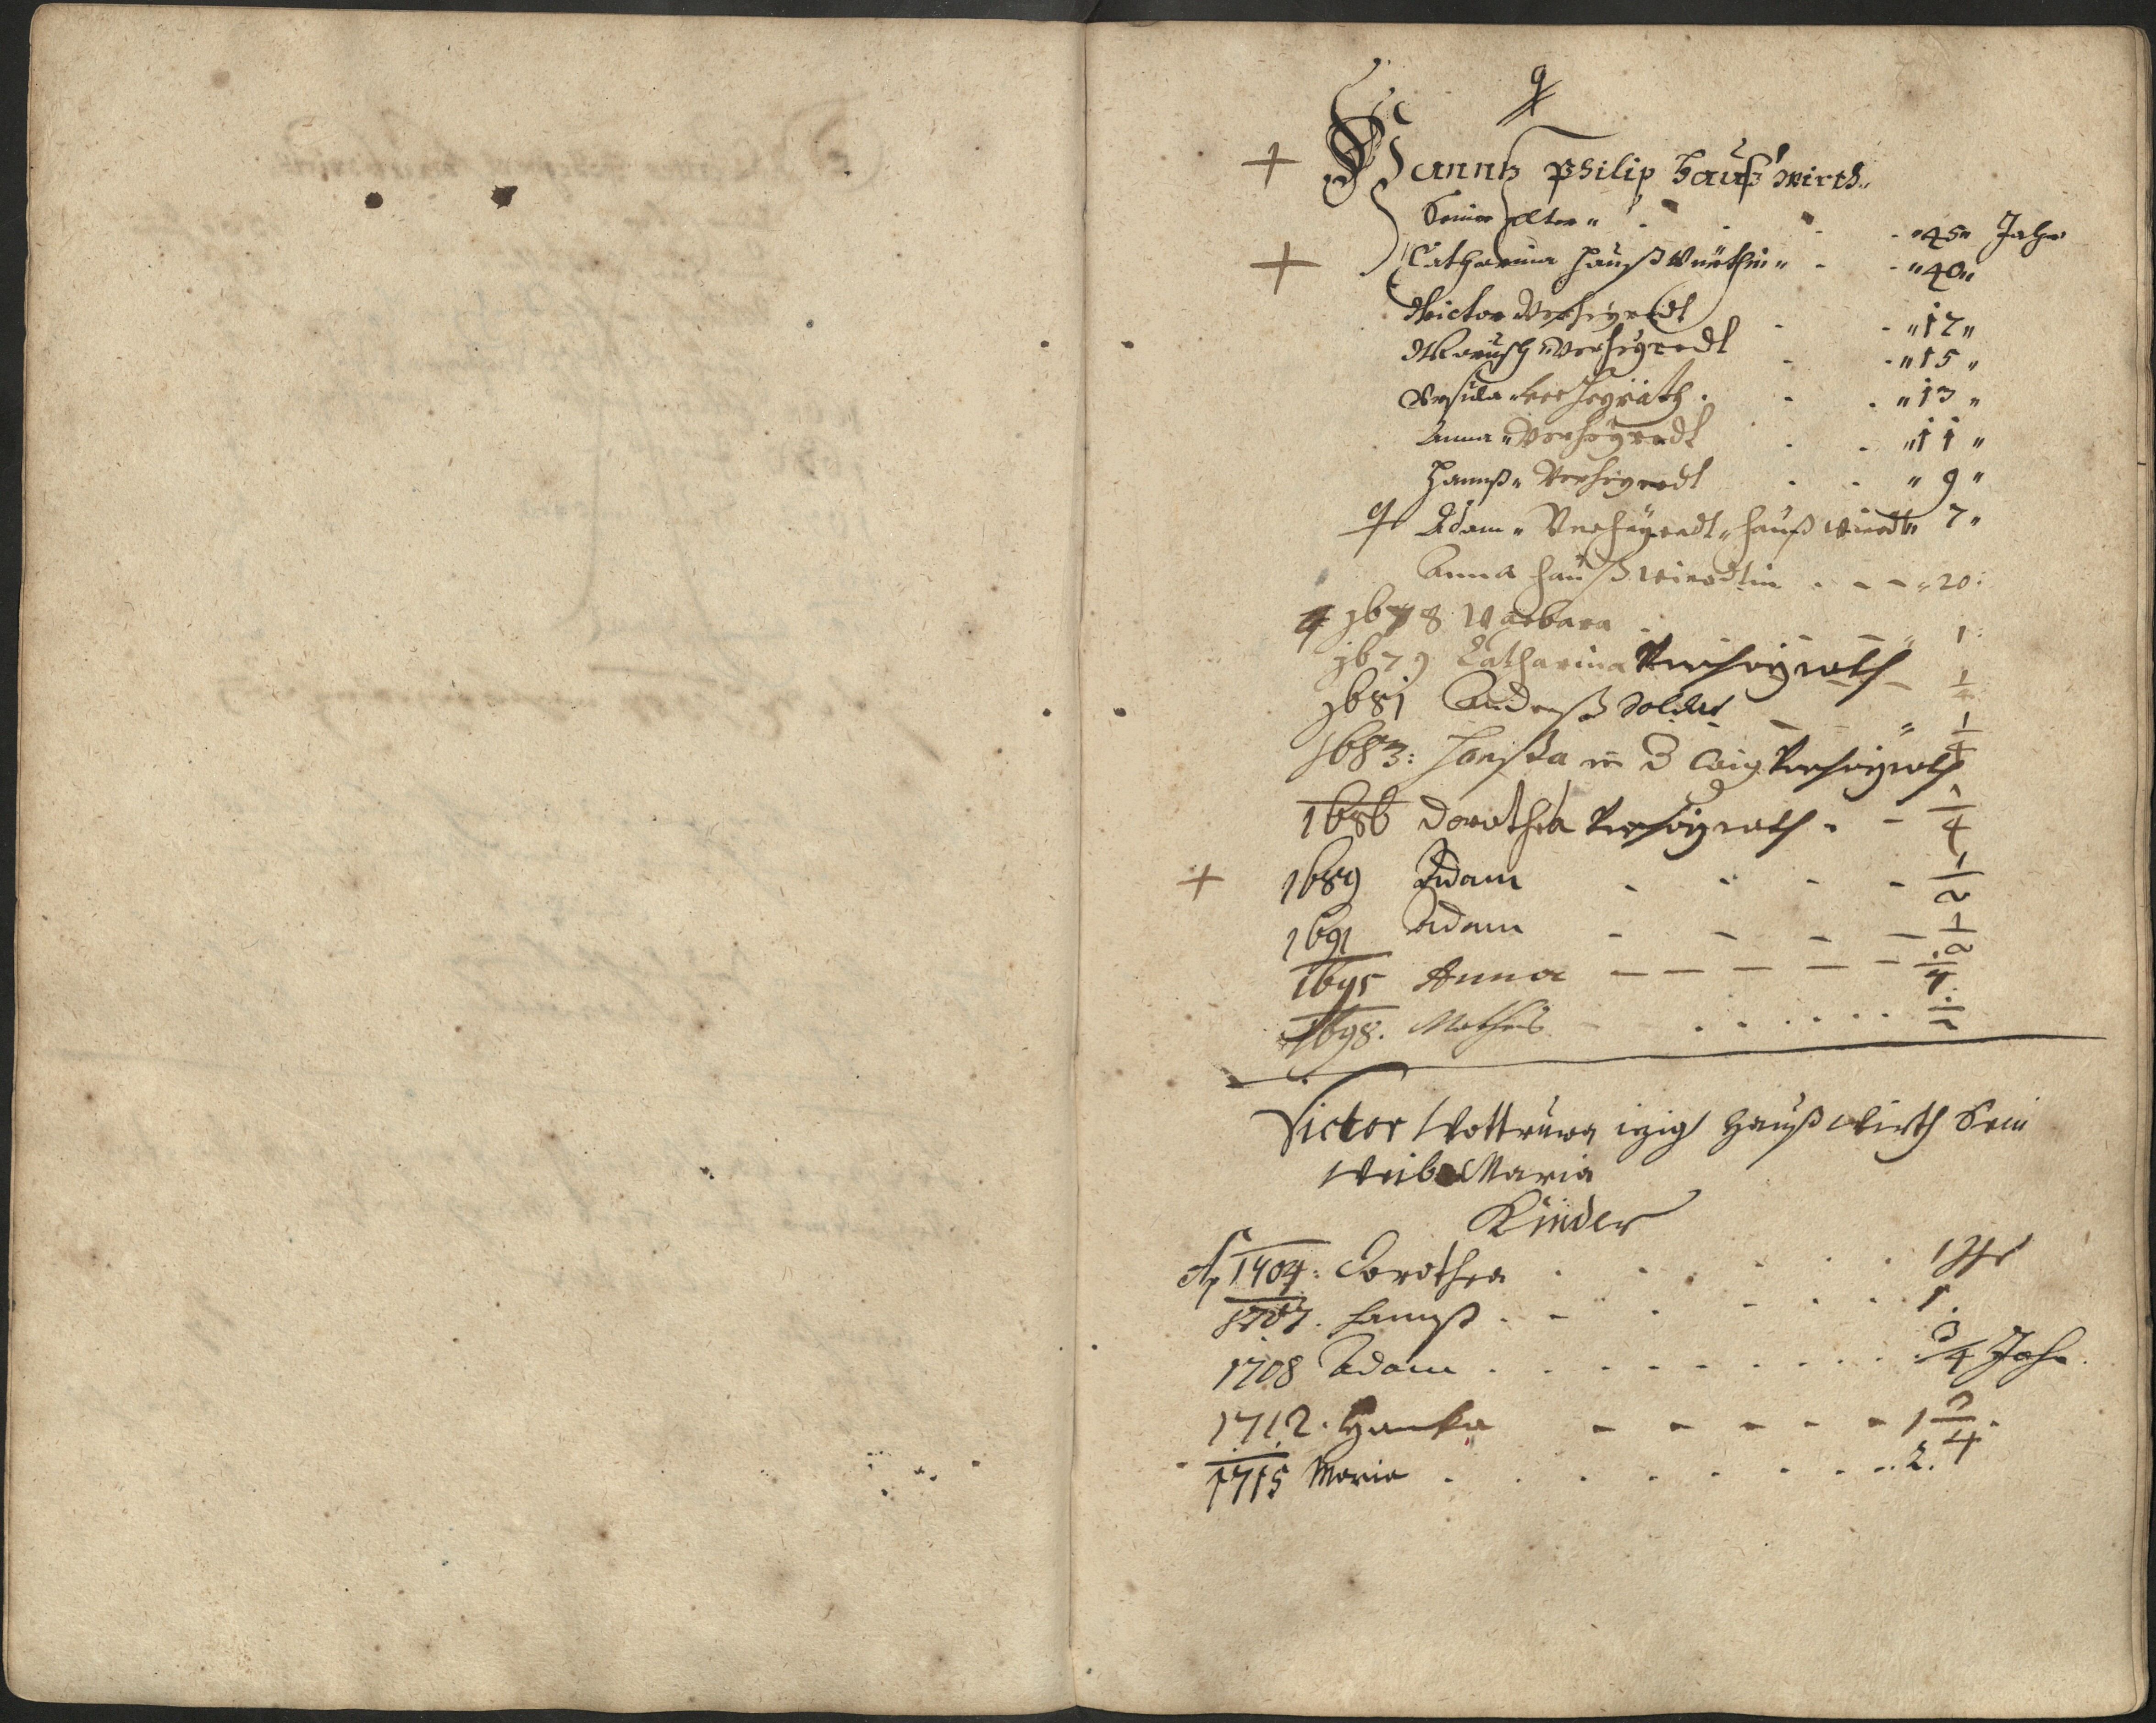 9
+ Hannß Philip Haußwirth
Seines Alter " 45 " Jahr
+ Catharina Haußwürthin " " 40 "
Victor Verheyredt " 17 "
Verheyredt " 15 "
Ursula Verheyräth " 13 "
Anna " Verheyredt " 11 "
Hannß " Verheyredt " 9 "
Adam " Verheyredt " Haußwierdt " 7 "
Anna Haußwierdtin " 20 :
1678 Barbara 1 :
1679 Catharina Verheyrath 1/2
1681 Andreß Soldat " 1/4
1683 : Verheyrath
1686 Dorothea Verheyrath 1/4
+ 1689 Adam 1/2
1691 Adam 1/2
1695 Anna 1/4
1698 . Mathes 1/2
Victor Wottruwa izigl Haußwirth Sein
Weib Maria
Kinder
1704 : Dorothea 1 Jhr
1707 . Hannß 1 .
1708 Adam 3/4 Jahr .
1712 . Hanka 1 3/4 .
1715 Maria 2 .